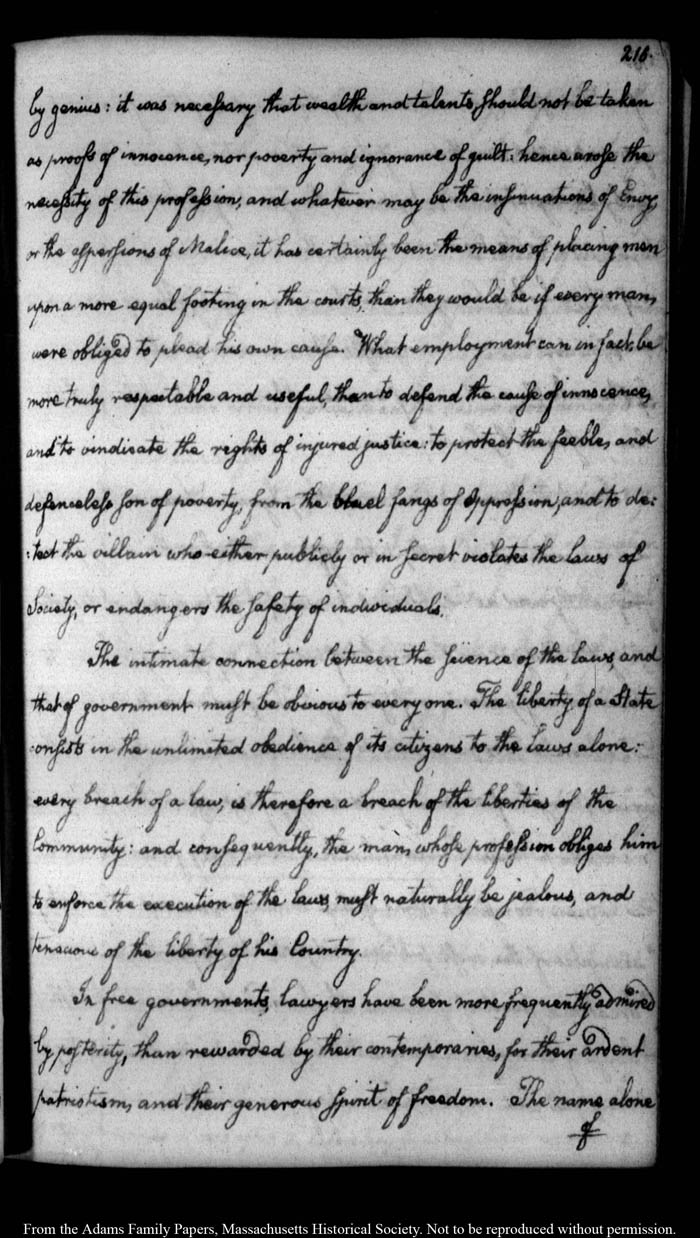 216.
by genius: it was necessary that wealth and talents, should not be taken
as proofs of innocence, nor poverty and ignorance of guilt: hence arose the
necessity of this profession, and whatever may be the insinuations of Envy,
or the aspersions of Malice, it has certainly been the means of placing men
upon a more equal footing in the courts, than they would be if every man,
were obliged to plead his own cause. What employment can in fact, be
more truly respectable and useful, than to defend the cause of innocence,
and to vindicate the rights of injured justice: to protect the feeble, and
defenceless son of poverty, from the fangs of Oppression, and to de:
:tect the villain who either publicly or in secret violates the laws of
Society, or endangers the safety of individuals.
The intimate connection between the science of the laws, and
that of government must be obvious to every one. The liberty of a State
consists in the unlimited obedience of its citizens to the laws alone:
every breach of a law, is therefore a breach of the liberties of the
Community: and consequently, the man, whose profession obliges him
to enforce the execution of the laws, must naturally be jealous, and
tenacious of the liberty of his Country.
In free governments, lawyers have been more frequently admired
by posterity, than rewarded by their contemporaries, for their ardent
patriotism, and their generous spirit of freedom. The name alone
of
From the Adams Family Papers, Massachusetts Historical Society. Not to be reproduced without permission.